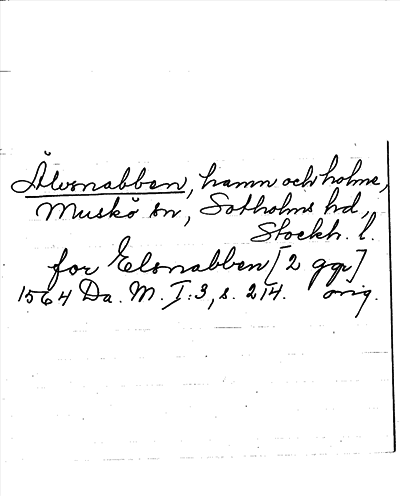 Älvsnabben, hamn och holme,
Muskö sn, Sotholms hd,
Stockh. l.
for Elsnabben [2 ggr]
1564 Da. M. I:3, s. 214. orig.